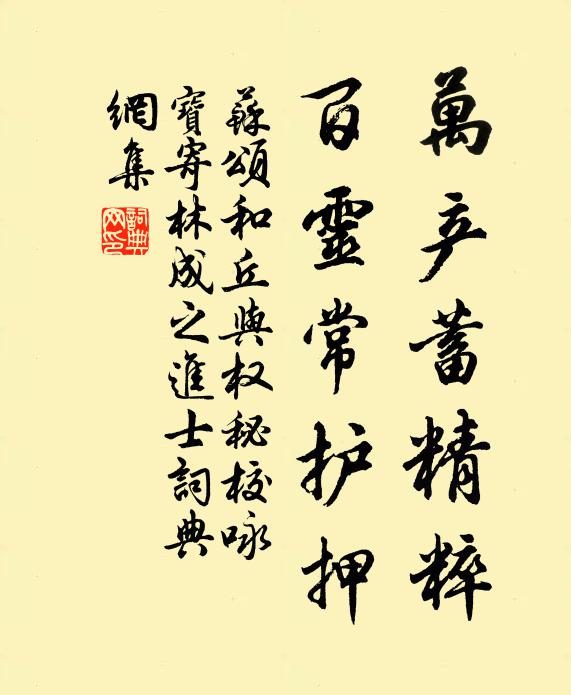 萬产蓄精粹
百靈常护押
蘇頌和丘與权秘校咏
寶寄林成之進士詞典
網集
詞典网印